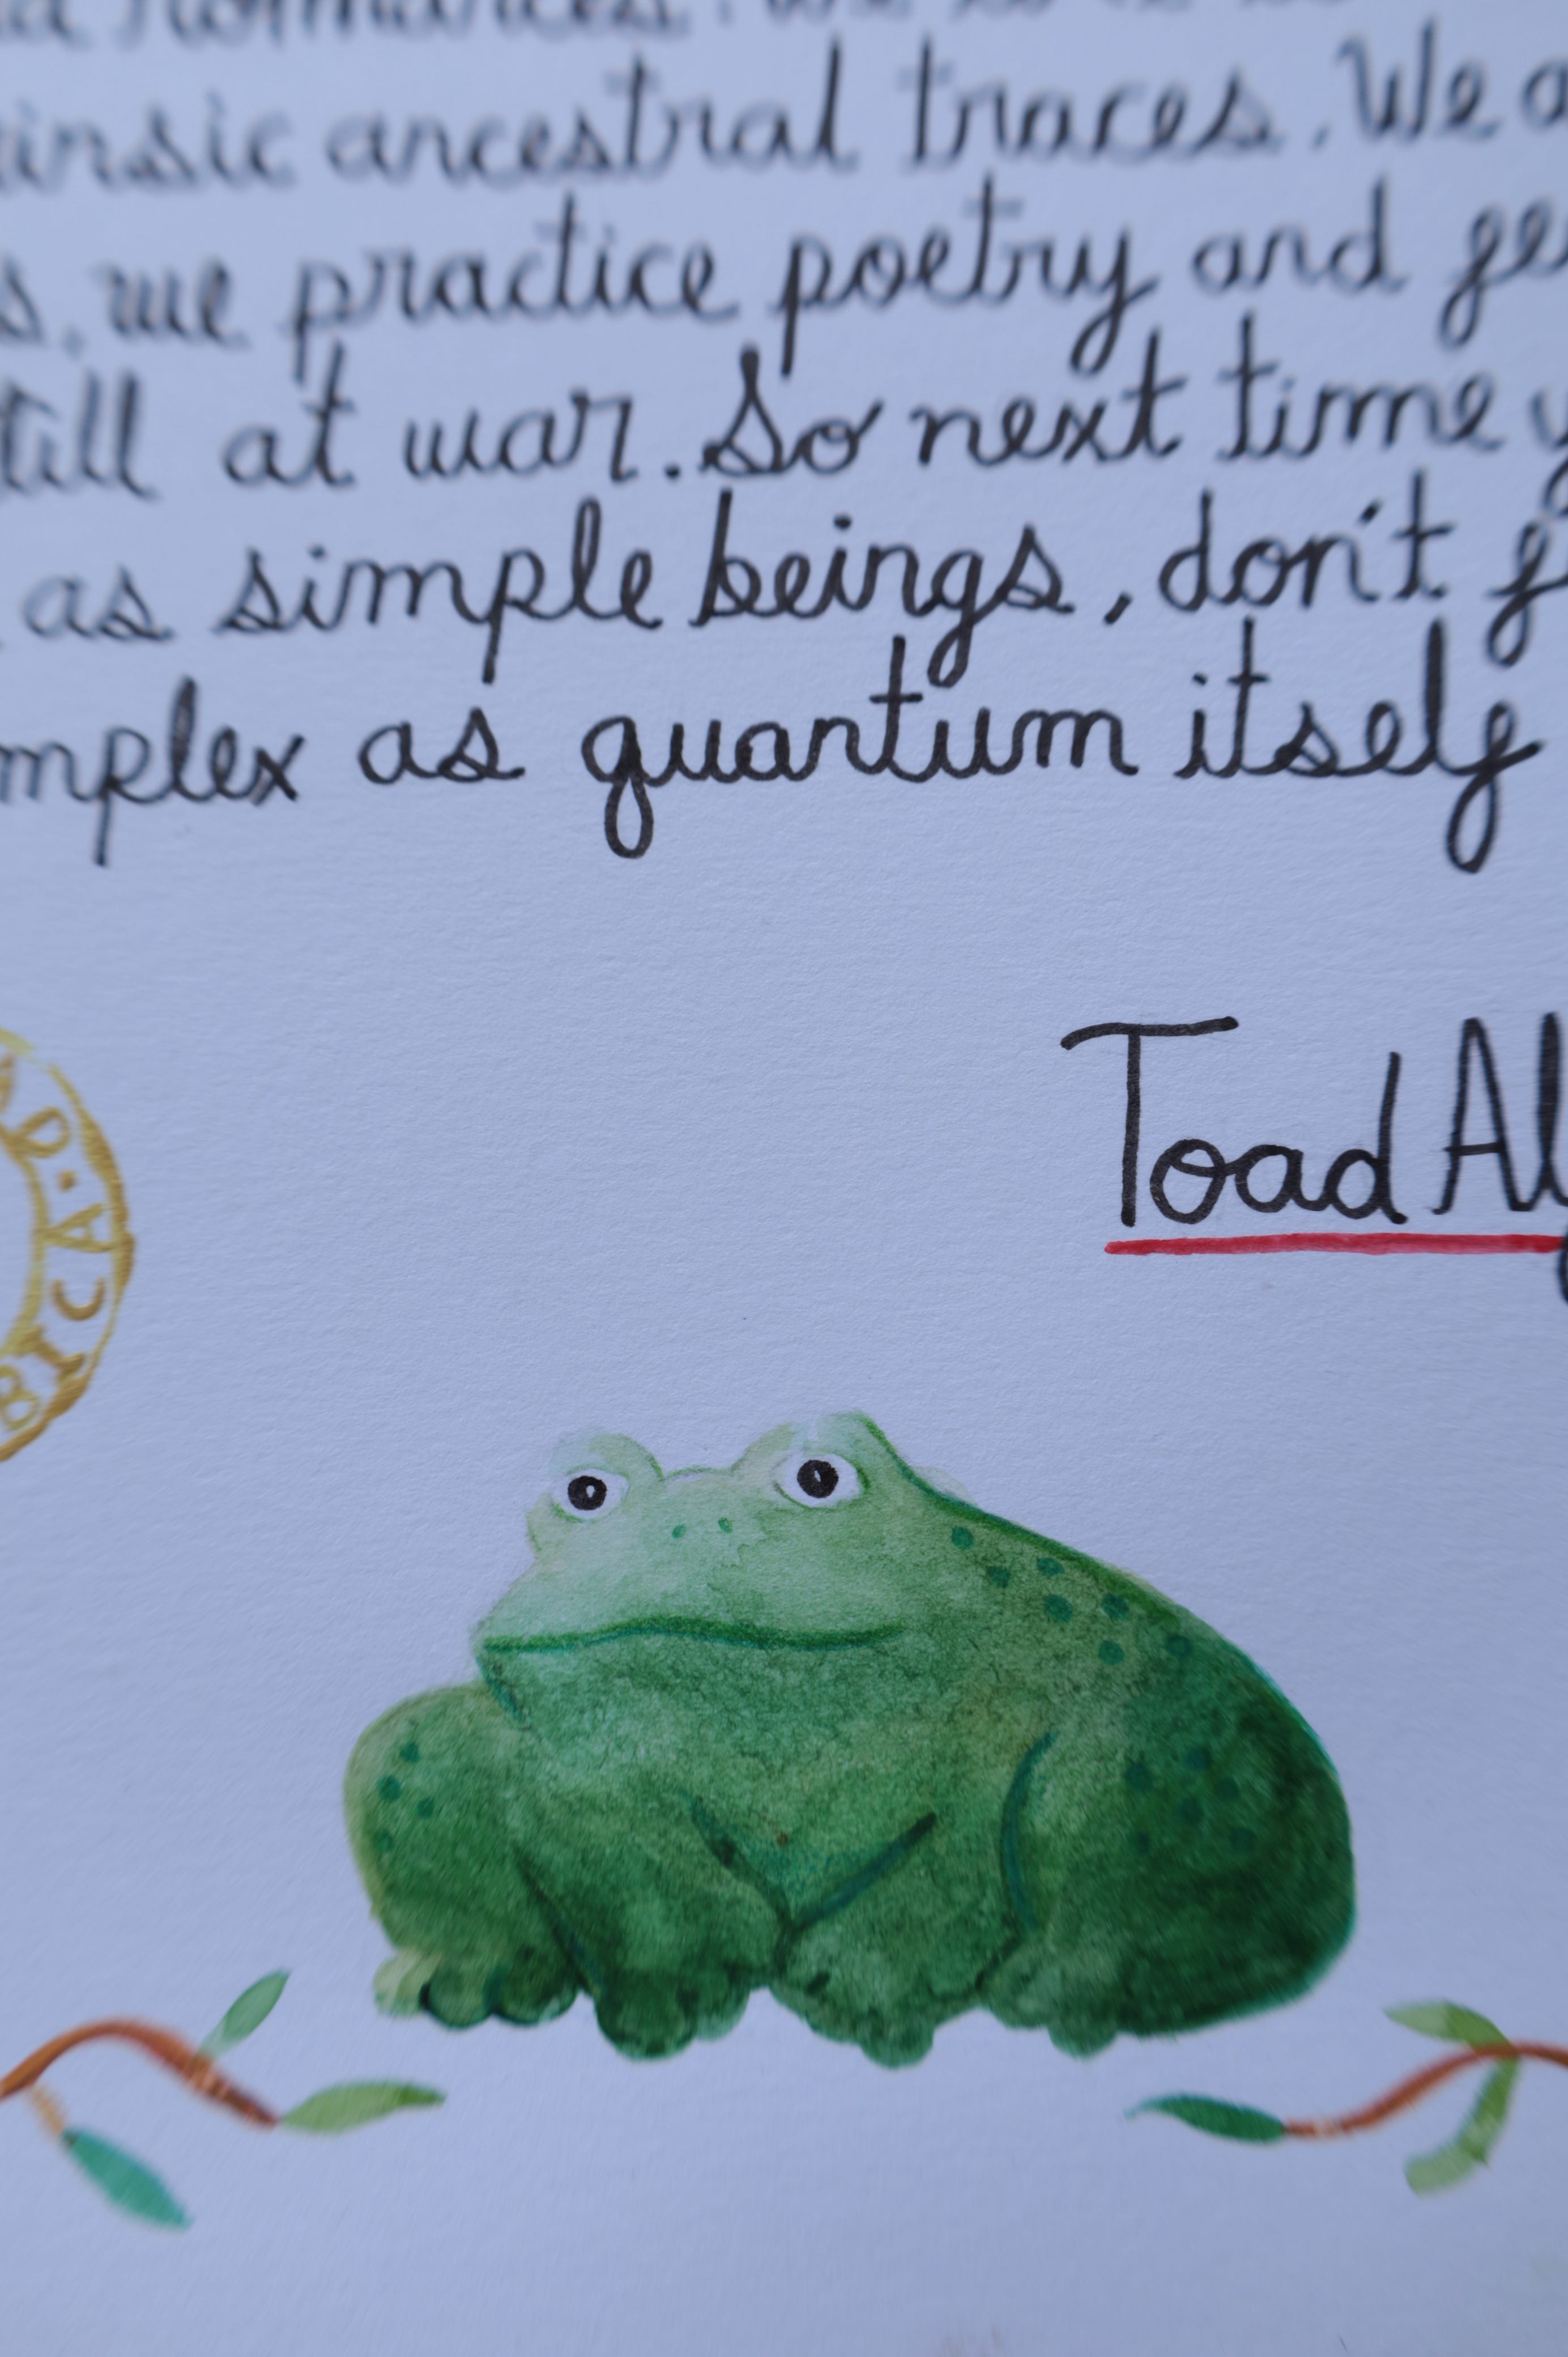 insic ancestral traces. We a
s, we practice poetry and ge
till at war. So next time y
as simple beings, don't f
mplex as quantum itself
Toad Al
O · A
BICA